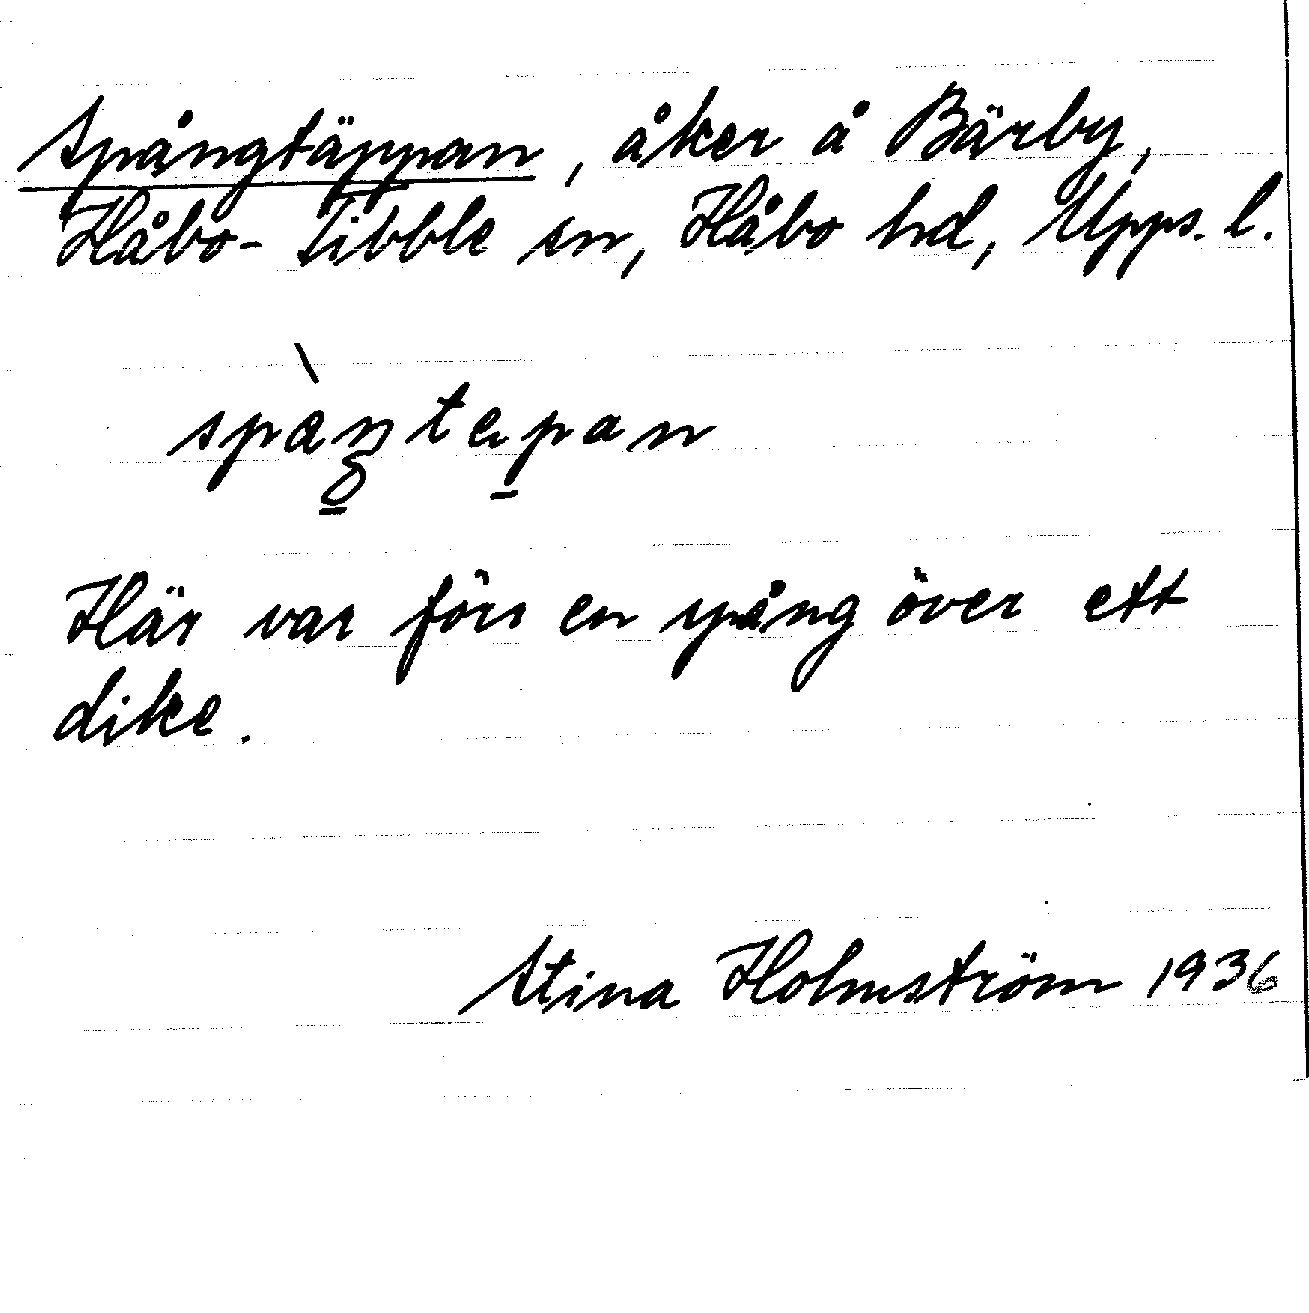 Spångtäppan, åker å Bärby,
Håbo-Tibble sn, Håbo hd, Upps. l.
spàŋtepan
Här var förr en spång över ett
dike.
Stina Holmström 1936